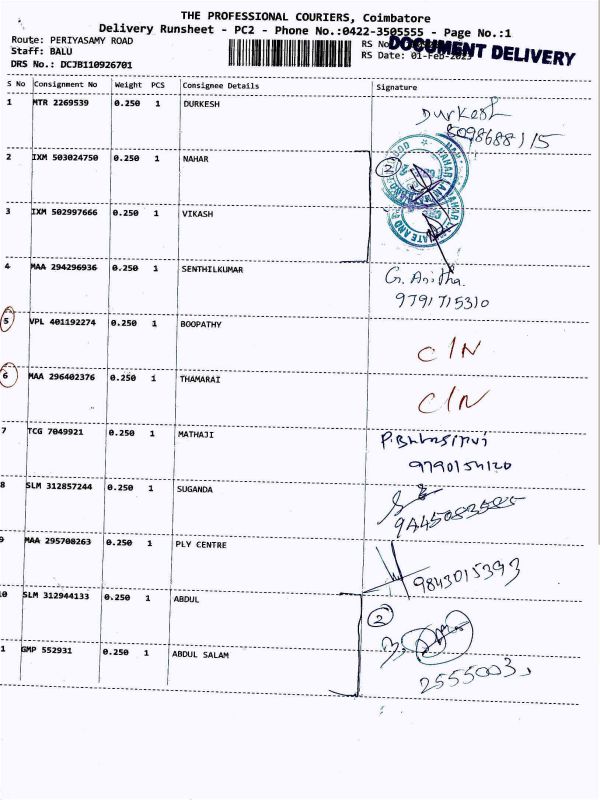 THE PROFESSIONAL COURIERS, Coimbatore
Delivery Runsheet - PC2 - Phone No.:0422-3505555 - Page No.:1
Route: PERIYASAMY ROAD
Staff: BALU
DRS No.: DCJB110926701
RS No
DOCUMENT DELIVERY
RS Date: 01-Feb-2023
S No Consignment No Weight PCS Consignee Details Signature
1 MTR 2269539 0.250 1 DURKESH Durkesh
2 IXM 503024750 0.250 1 NAHAR 2
3 IXM 502997666 0.250 1 VIKASH
4 MAA 294296936 0.250 1 SENTHILKUMAR G. Anitha.
9791715310
5 VPL 401192274 0.250 1 BOOPATHY C/N
6 MAA 296402376 0.250 1 THAMARAI C/N
7 TCG 7049921 0.250 1 MATHAJI
9790154120
8 SLM 312857244 0.250 1 SUGANDA
9 MAA 295708263 0.250 1 PLY CENTRE
9843015393
10 SLM 312944133 0.250 1 ABDUL 2
1 GMP 552931 0.250 1 ABDUL SALAM
2555003